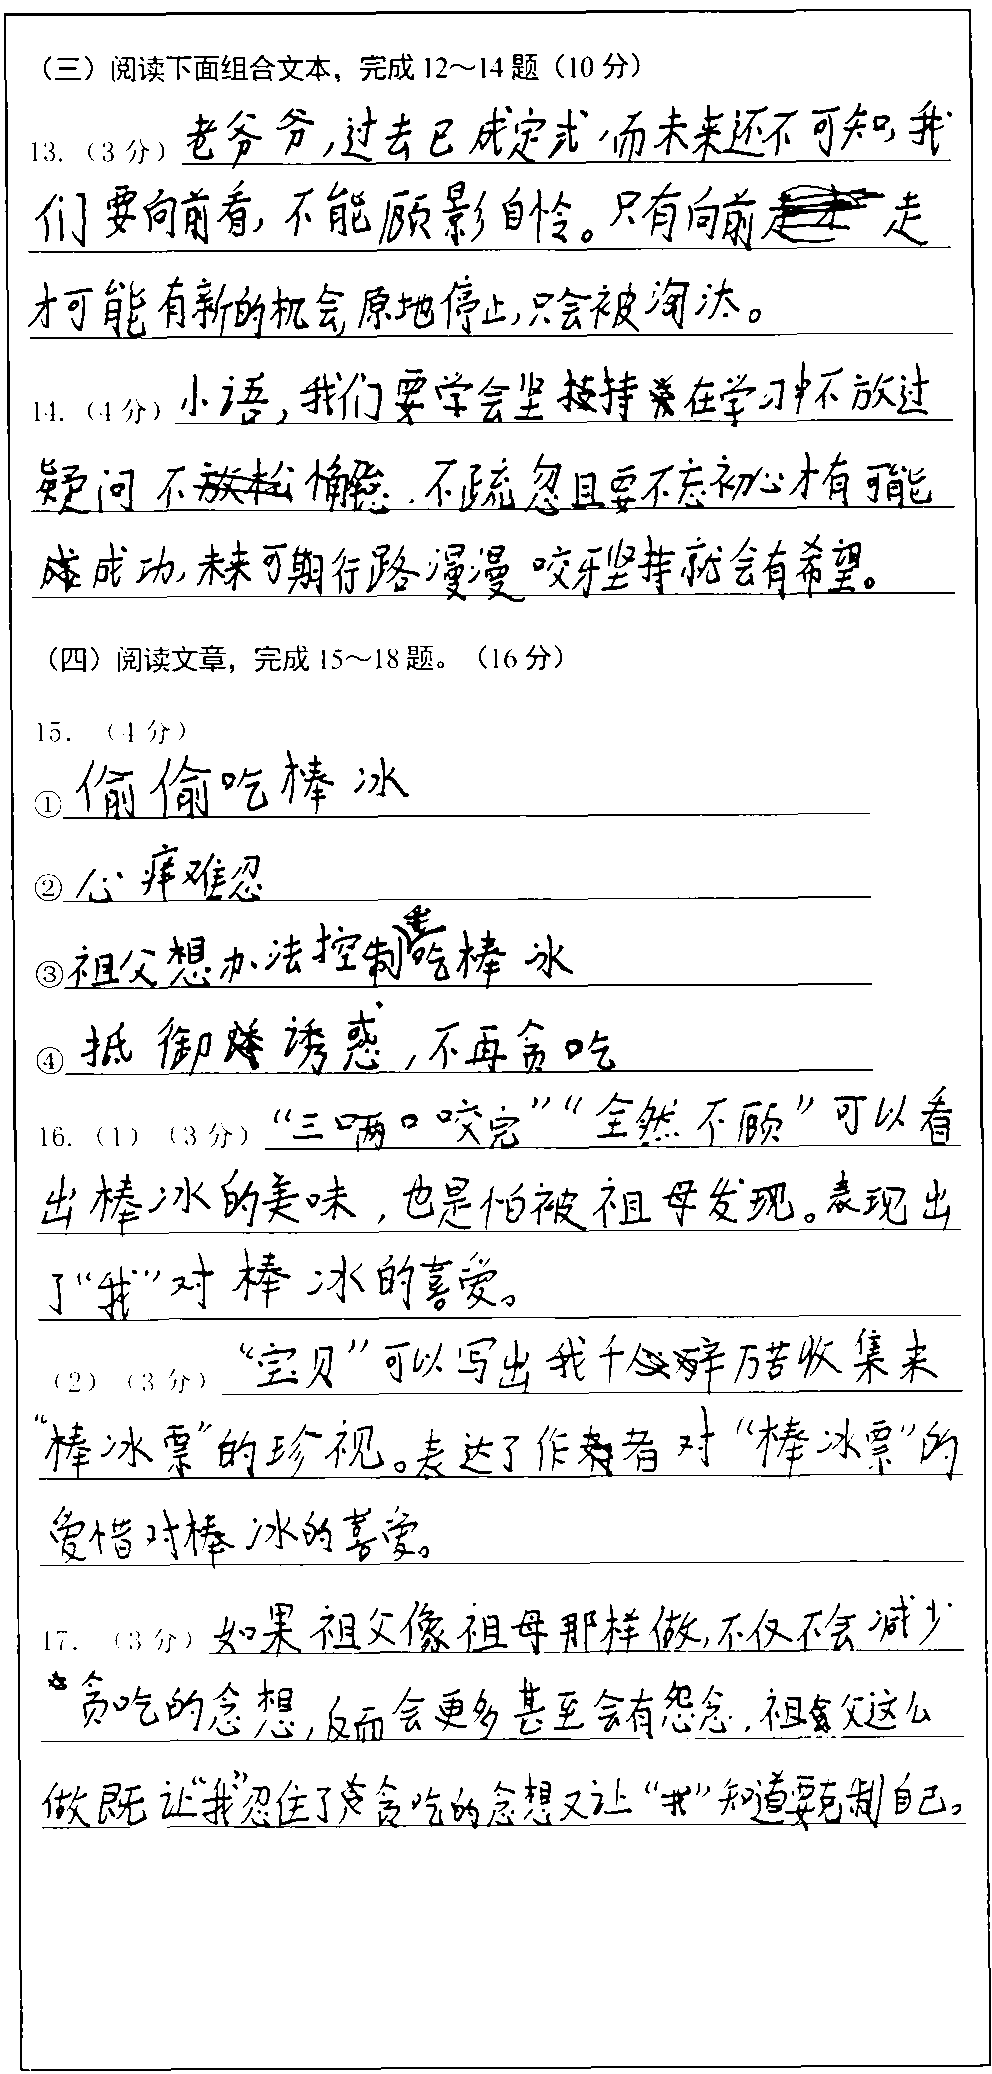 （三）阅读下面组合文本，完成12～14题（10分）
13.（3分）老爷爷,过去已成定式,而未来还不可知,我
们要向前看,不能顾影自怜。只有向前走
才可能有新的机会,原地停止,只会被淘汰。
14.（4分）小语,我们要学会坚持在学习中不放过
疑问 不懈怠.不疏忽且要不忘初心才有可能
成功,未来可期行路漫漫 咬牙坚持就会有希望。
（四）阅读文章，完成15～18题。（16分）
15.（4分）
①偷偷吃棒冰
②心痒难忍
③祖父想办法控制我吃棒冰
④抵御诱惑,不再贪吃
16.（1）（3分）“三两口咬完”“全然不顾”可以看
出棒冰的美味,也是怕被祖母发现。表现出
了“我”对棒冰的喜爱。
（2）（3分）“宝贝”可以写出我千辛万苦收集来
“棒冰票”的珍视。表达了作者对“棒冰票”的
爱惜对棒冰的喜爱。
17.（3分）如果祖父像祖母那样做,不仅不会减少
贪吃的念想,反而会更多甚至会有怨念.祖父这么
做既让“我”忍住了贪吃的念想又让“我”知道要克制自己。